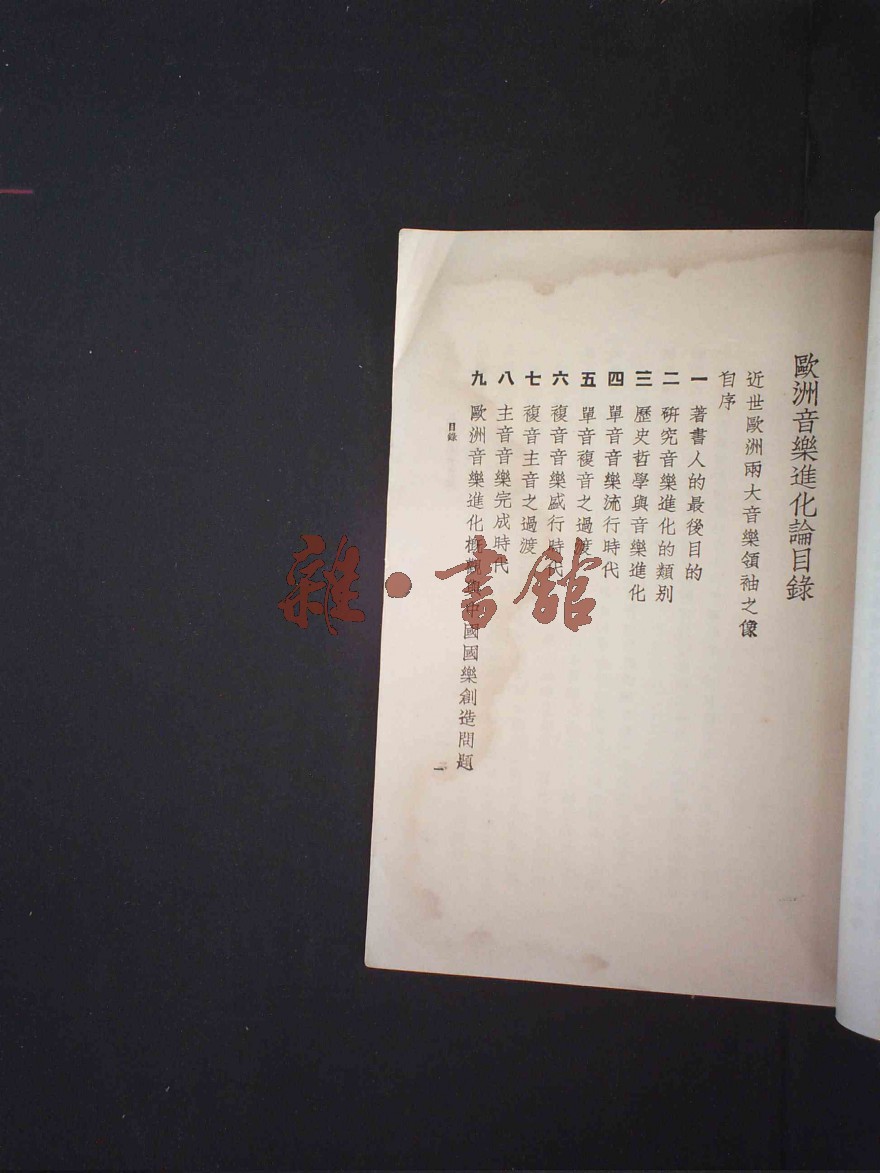 歐洲音樂進化論目錄
近世歐洲兩大音樂領袖之像
自序
一 著書人的最後目的
二 研究音樂進化的類別
三 歷史哲學與音樂進化
四 單音音樂流行時代
五 單音複音之過渡
六 複音音樂盛行時代
七 複音主音之過渡
八 主音音樂完成時代
九 歐洲音樂進化概觀與中國國樂創造問題
目錄
一
雜·書館